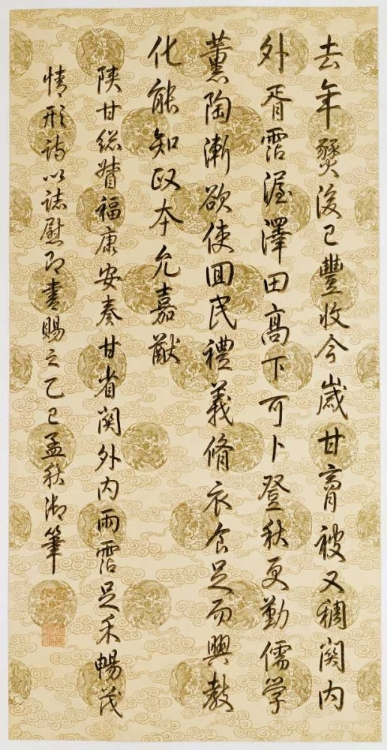 去年燹後已豐收今歲甘膏被又稠関内
外胥霑渥澤田高下可卜登秋更勤儒學
薰陶漸欲使囬民禮義脩衣食足而興教
化能知政本允嘉猷
陝甘総督福康安奏甘省関外内雨霑足禾暢茂
情形詩以誌慰即書賜之乙巳孟秋御筆